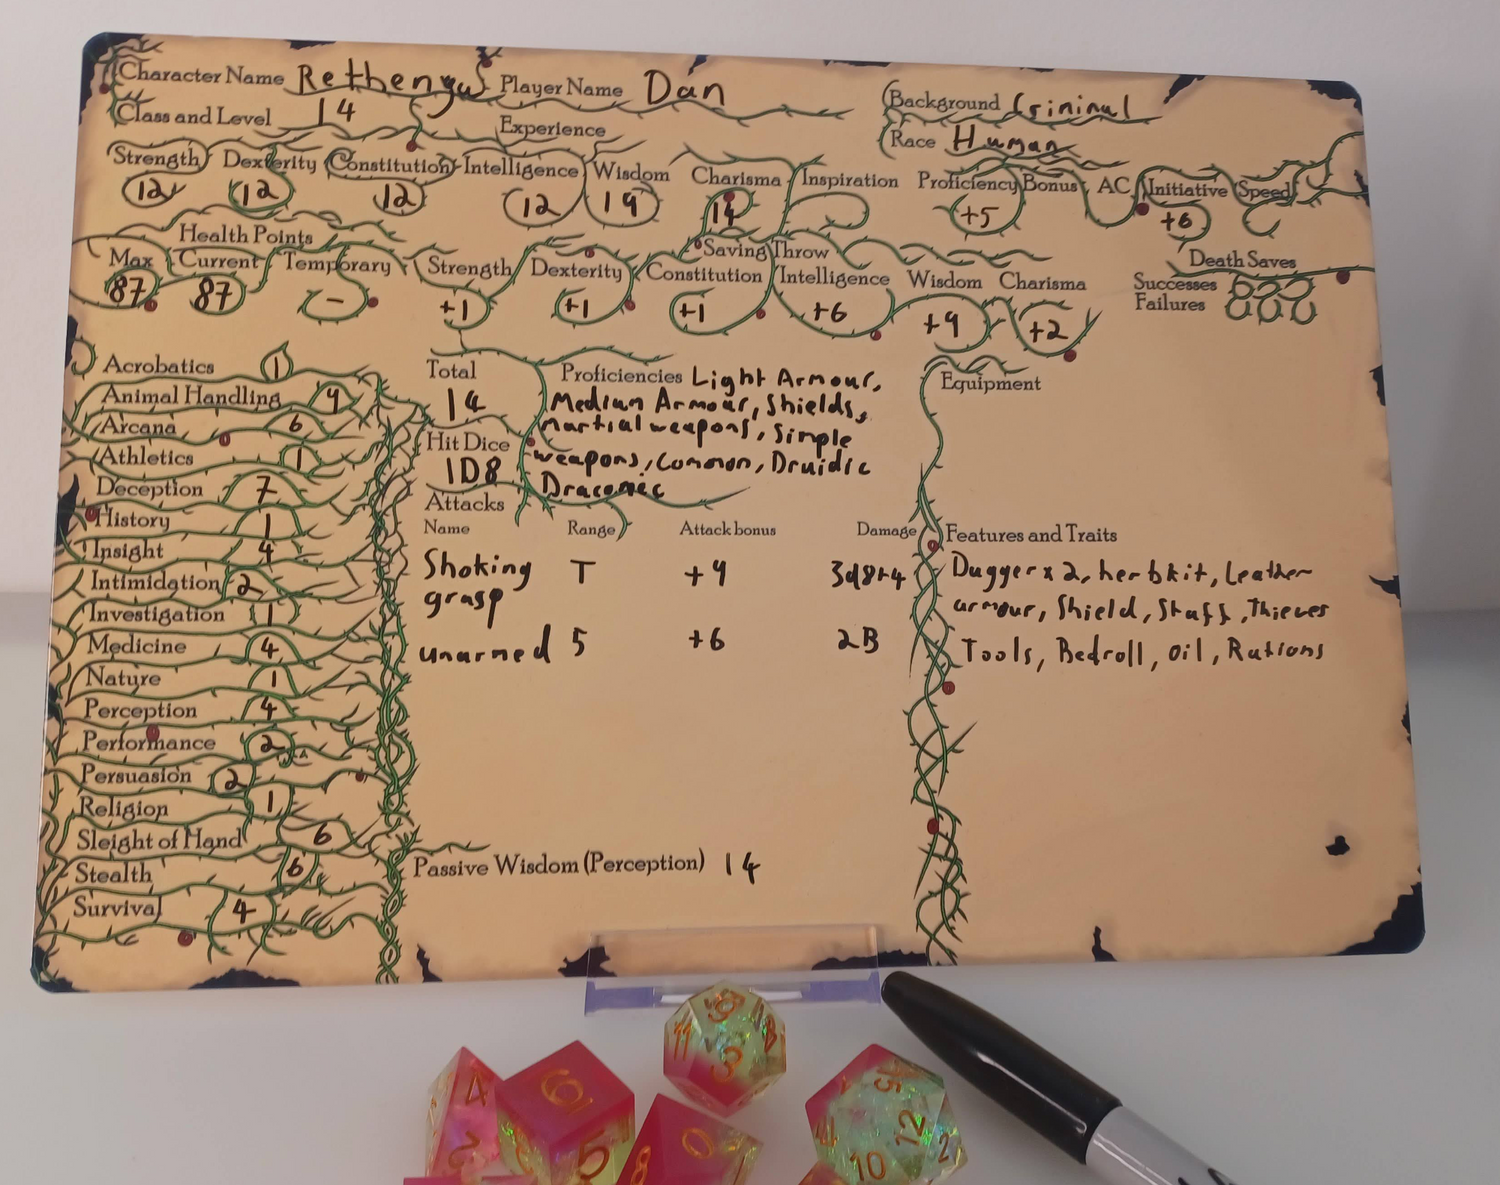 Character Name Rethengu Player Name Dan
Background Criminal
Class and Level 14
Experience
Race Human
Strength Dexterity Constitution Intelligence Wisdom Charisma Inspiration Proficiency Bonus AC Initiative Speed
12 12 12 12 19 14 +5 +6
Health Points
Saving Throw
Death Saves
Max Current Temporary Strength Dexterity Constitution Intelligence Wisdom Charisma
87 87 - +1 +1 +1 +6 +9 +2
Successes
Failures
Acrobatics 1
Animal Handling 9
Arcana 6
Athletics 1
Deception 7
History 1
Insight 4
Intimidation 2
Investigation 1
Medicine 4
Nature 1
Perception 4
Performance 2
Persuasion 2
Religion 1
Sleight of Hand 6
Stealth 6
Survival 4
Total
14
Hit Dice
1D8
Proficiencies Light Armour,
Medium Armour, Shields,
martial weapons, Simple
weapons, Common, Druidic
Draconic
Attacks
Name Range Attack bonus Damage
Shoking T +9 3d8+4
grasp
unarmed 5 +6 2B
Passive Wisdom (Perception) 14
Equipment
Features and Traits
Dugger x 2, herbkit, Leather
armour, Shield, Staff, Thieves
Tools, Bedroll, oil, Rations
4
2
6
5
11
9
18
3
8
0
5
4
12
2
10